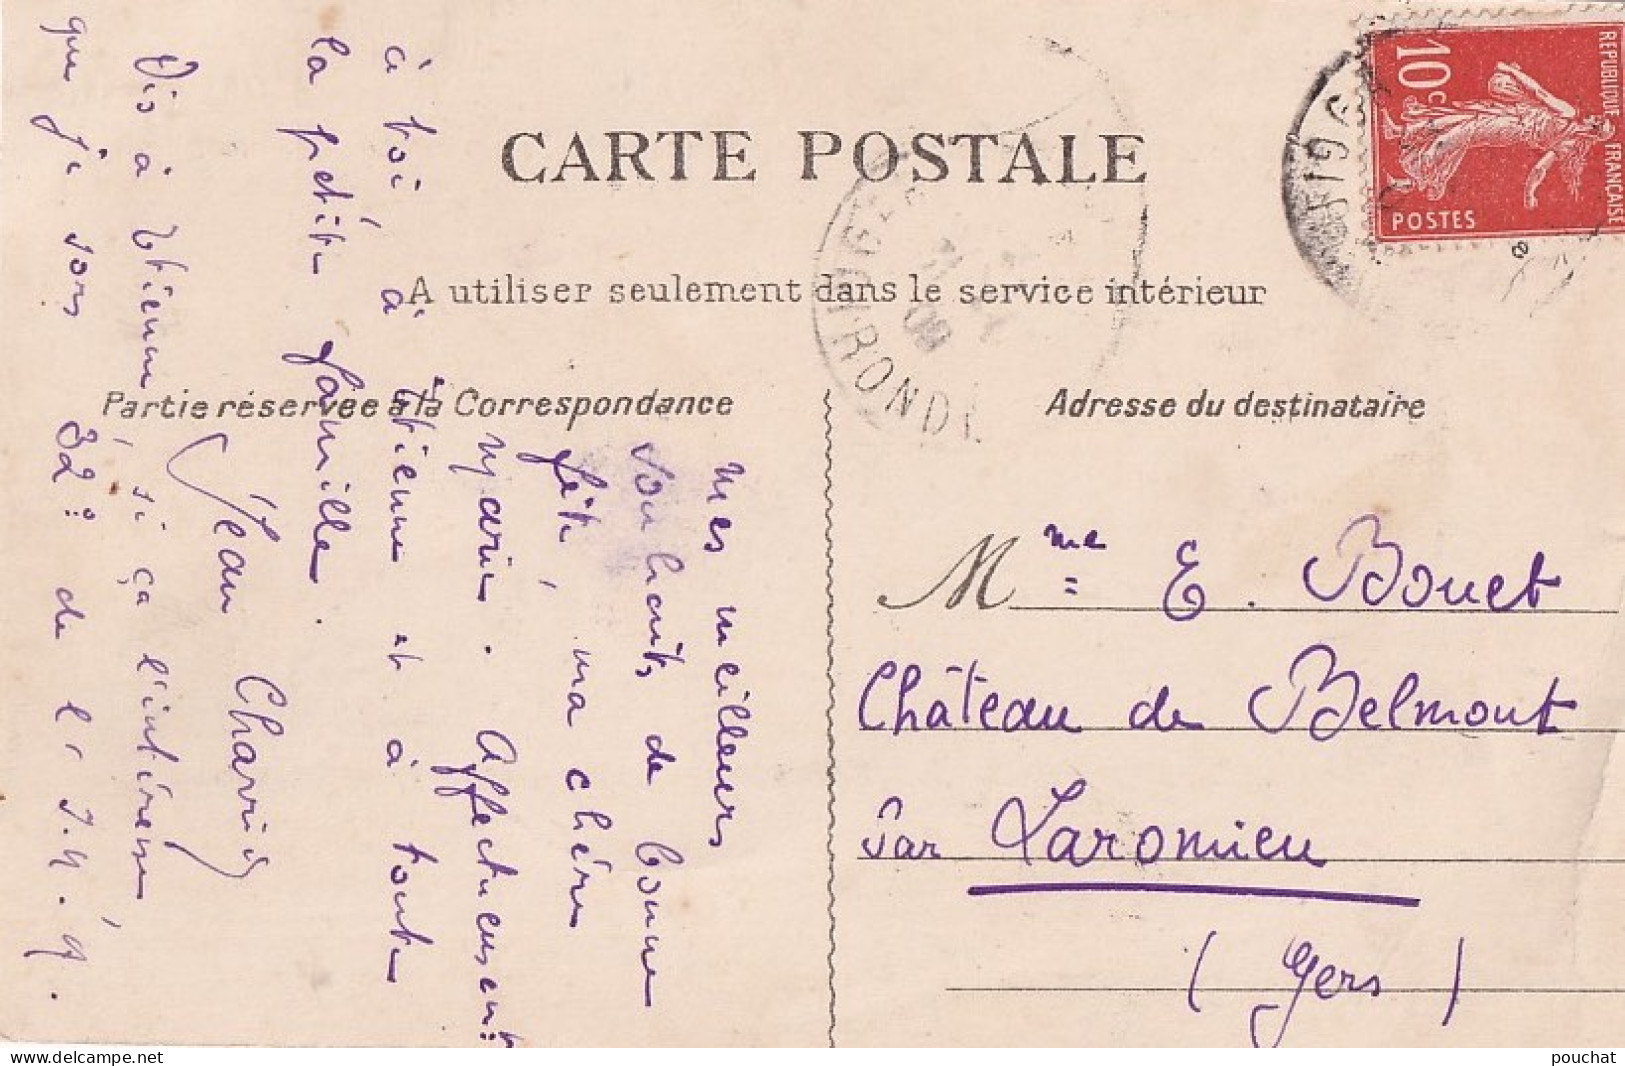 CARTE POSTALE
A utiliser seulement dans le service intérieur
Partie réservée à la Correspondance
Adresse du destinataire
REPUBLIQUE FRANÇAISE
10c
POSTES
GIRONDE
09
Mes meilleurs
souhaits de bonne
fête, ma chère
Marie. Affectueusent
à toi à Etienne et à toute
la petite famille.
Jean Charrié
Dis à Etienne, si ça l'intéresse
que je sors 32e de l'I.N.A.
Mme E. Bouet
Château de Belmont
par Laromieu
(Gers)
delcampe.net
pouchat